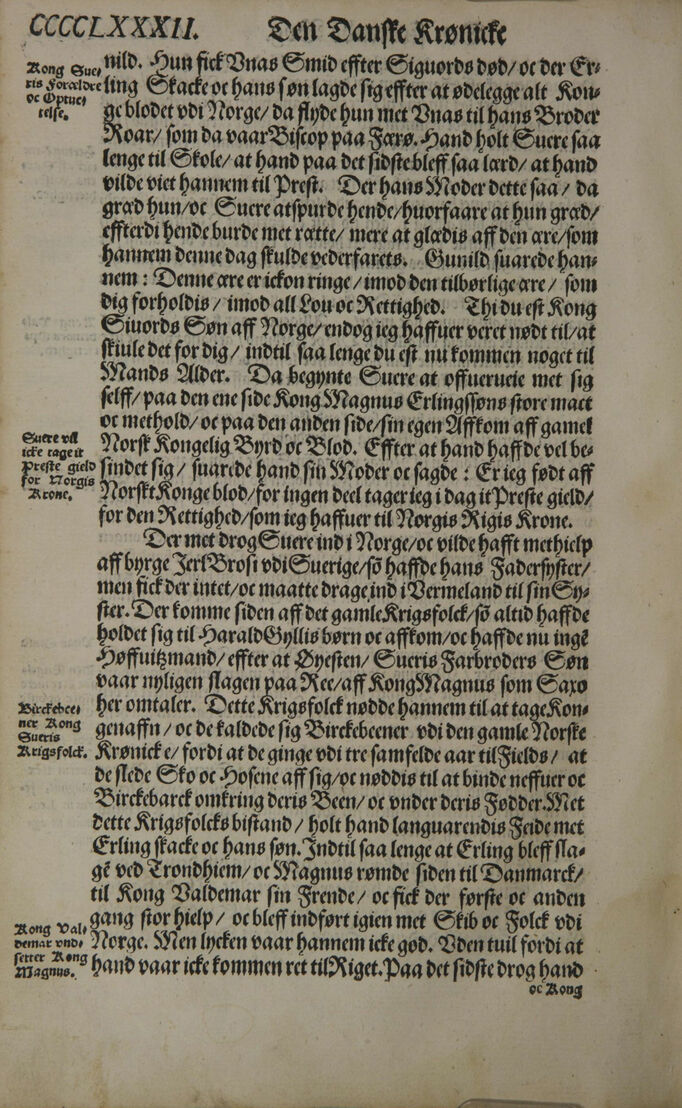 CCCCLXXXII. Den Danske Krønicke
Kong Sue,
ris Forældre
oc Optuc,
telse.
nild. Hun fick Vnas Smid effter Siguords død/ oc der Er-
ling Skacke oc hans søn lagde sig effter at ødelegge alt Kon-
ge blodet vdi Norge/ da flyde hun met Vnas til hans Broder
Roar/ som da vaar Biscop paa Færø. Hand holt Suere saa
lenge til Skole/ at hand paa det sidste bleff saa lærd/ at hand
vilde viet hannem til Prest. Der hans Moder dette saa/ da
græd hun/ oc Suere atspurde hende/ huorfaare at hun græd/
effterdi hende burde met rætte/ mere at glædis aff den ære/ som
hannem denne dag skulde vederfarets. Gunild suarede han-
nem: Denne ære er ickon ringe/ imod den tilbørlige ære/ som
dig forholdis/ imod all Lou oc Rettighed. Thi du est Kong
Siuords Søn aff Norge/ endog ieg haffuer veret nødt til/ at
skiule det for dig/ indtil saa lenge du est nu kommen noget til
Mands Alder. Da begynte Suere at offuerueie met sig
selff/ paa den ene side Kong Magnus Erlingssøns store mact
oc methold/ oc paa den anden side/ sin egen Affkom aff gamel
Norsk Kongelig Byrd oc Blod. Effter at hand haffde vel be-
sindet sig/ suarede hand sin Moder oc sagde: Er ieg født aff
Norskt Konge blod/ for ingen deel tager ieg i dag it Preste gield/
for den Rettighed/ som ieg haffuer til Norgis Rigis Krone.
Suere vil
icke tage it
Preste gield
for Norgis
Krone.
Der met drog Suere ind i Norge/ oc vilde hafft met hielp
aff byrge Jerl Brosi vdi Suerige/ sõ haffde hans Fadersyster/
men fick der intet/ oc maatte drage ind i Vermeland til sin Sy-
ster. Der komme siden aff det gamle Krigsfolck/ sõ altid haffde
holdet sig til Harald Gyllis børn oc affkom/ oc haffde nu ingẽ
Høffuitzmand/ effter at Øyesten/ Sueris Farbroders Søn
vaar nyligen slagen paa Ree/ aff Kong Magnus som Saxo
her omtaler. Dette Krigsfolck nødde hannem til at tage Kon-
genaffn/ oc de kaldede sig Birckebeener vdi den gamle Norske
Krønicke/ fordi at de ginge vdi tre samfelde aar til Fields/ at
de slede Sko oc Hosene aff sig/ oc nøddis til at binde neffuer oc
Birckebarck omkring deris Been/ oc vnder deris Fødder. Met
dette Krigsfolcks bistand/ holt hand languarendis Feide met
Erling skacke oc hans søn. Indtil saa lenge at Erling bleff sla-
gẽ ved Trondhiem/ oc Magnus rømde siden til Danmarck/
til Kong Valdemar sin Frende/ oc fick der første oc anden
gang stor hielp/ oc bleff indført igien met Skib oc Folck vdi
Norge. Men lycken vaar hannem icke god. Vden tuil fordi at
hand vaar icke kommen ret til Riget. Paa det sidste drog hand
Birckebee,
ner Kong
Sueris
Krigsfolck.
Kong Val,
demar vnd,
setter Kong
Magnus.
oc Kong